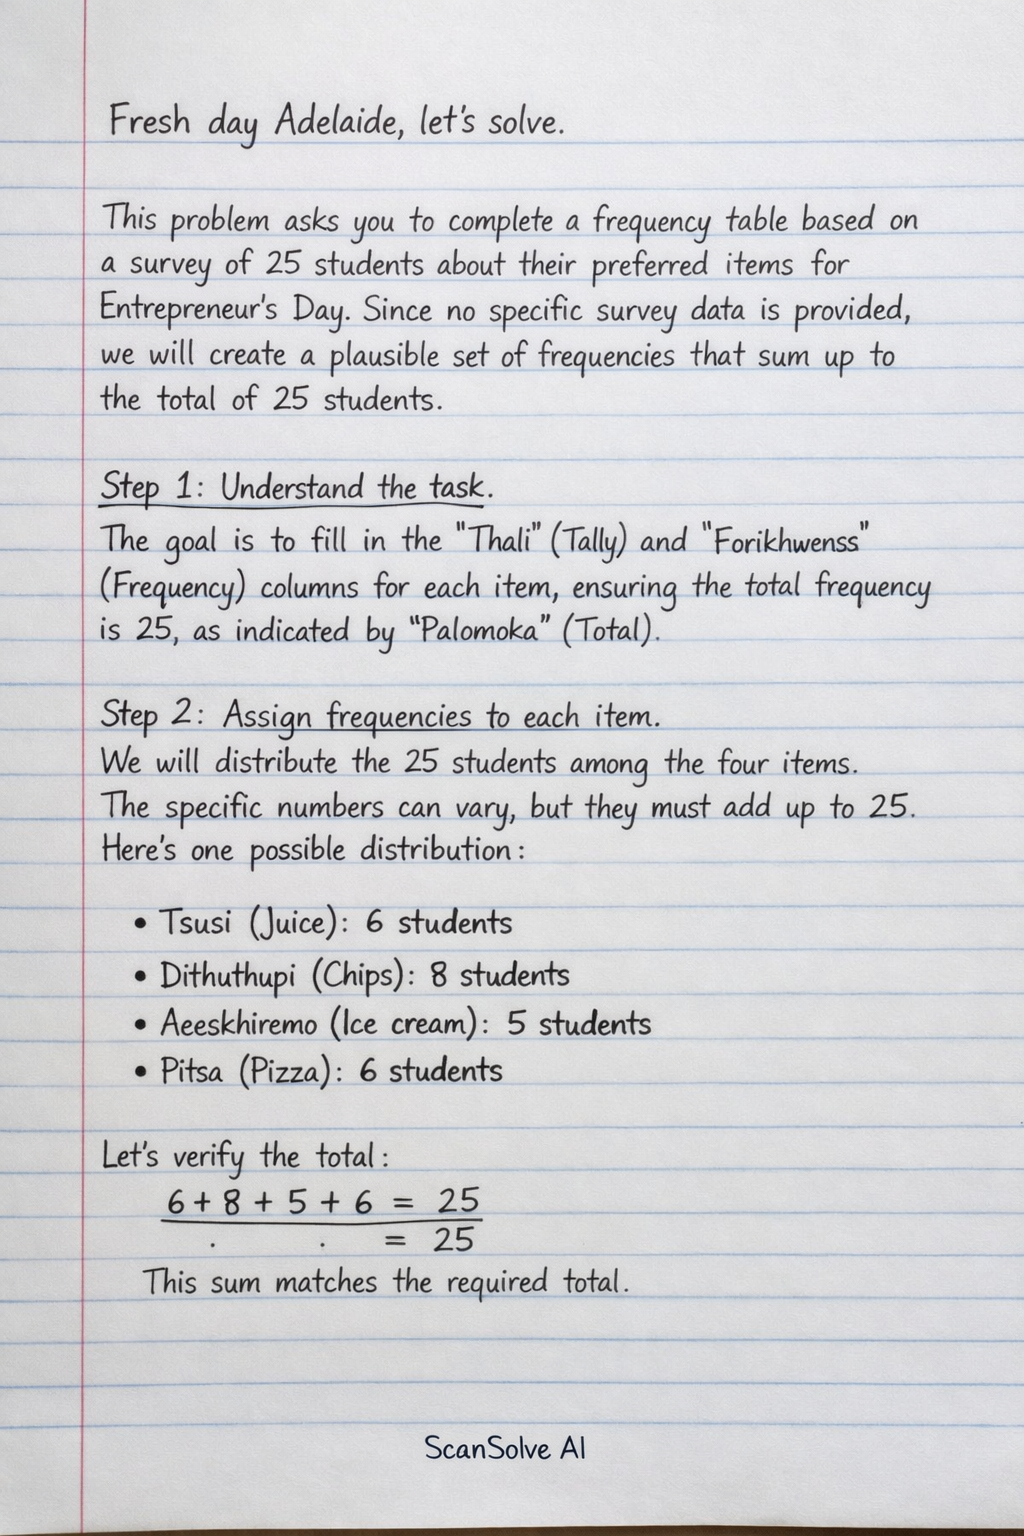 Fresh day Adelaide, let's solve.
This problem asks you to complete a frequency table based on
a survey of 25 students about their preferred items for
Entrepreneur's Day. Since no specific survey data is provided,
we will create a plausible set of frequencies that sum up to
the total of 25 students.
Step 1: Understand the task.
The goal is to fill in the "Thali" (Tally) and "Forikhwenss"
(Frequency) columns for each item, ensuring the total frequency
is 25, as indicated by "Palomoka" (Total).
Step 2: Assign frequencies to each item.
We will distribute the 25 students among the four items.
The specific numbers can vary, but they must add up to 25.
Here's one possible distribution:
• Tsusi (Juice): 6 students
• Dithuthupi (Chips): 8 students
• Aeeskhiremo (Ice cream): 5 students
• Pitsa (Pizza): 6 students
Let's verify the total:
6 + 8 + 5 + 6 = 25
= 25
This sum matches the required total.
ScanSolve AI